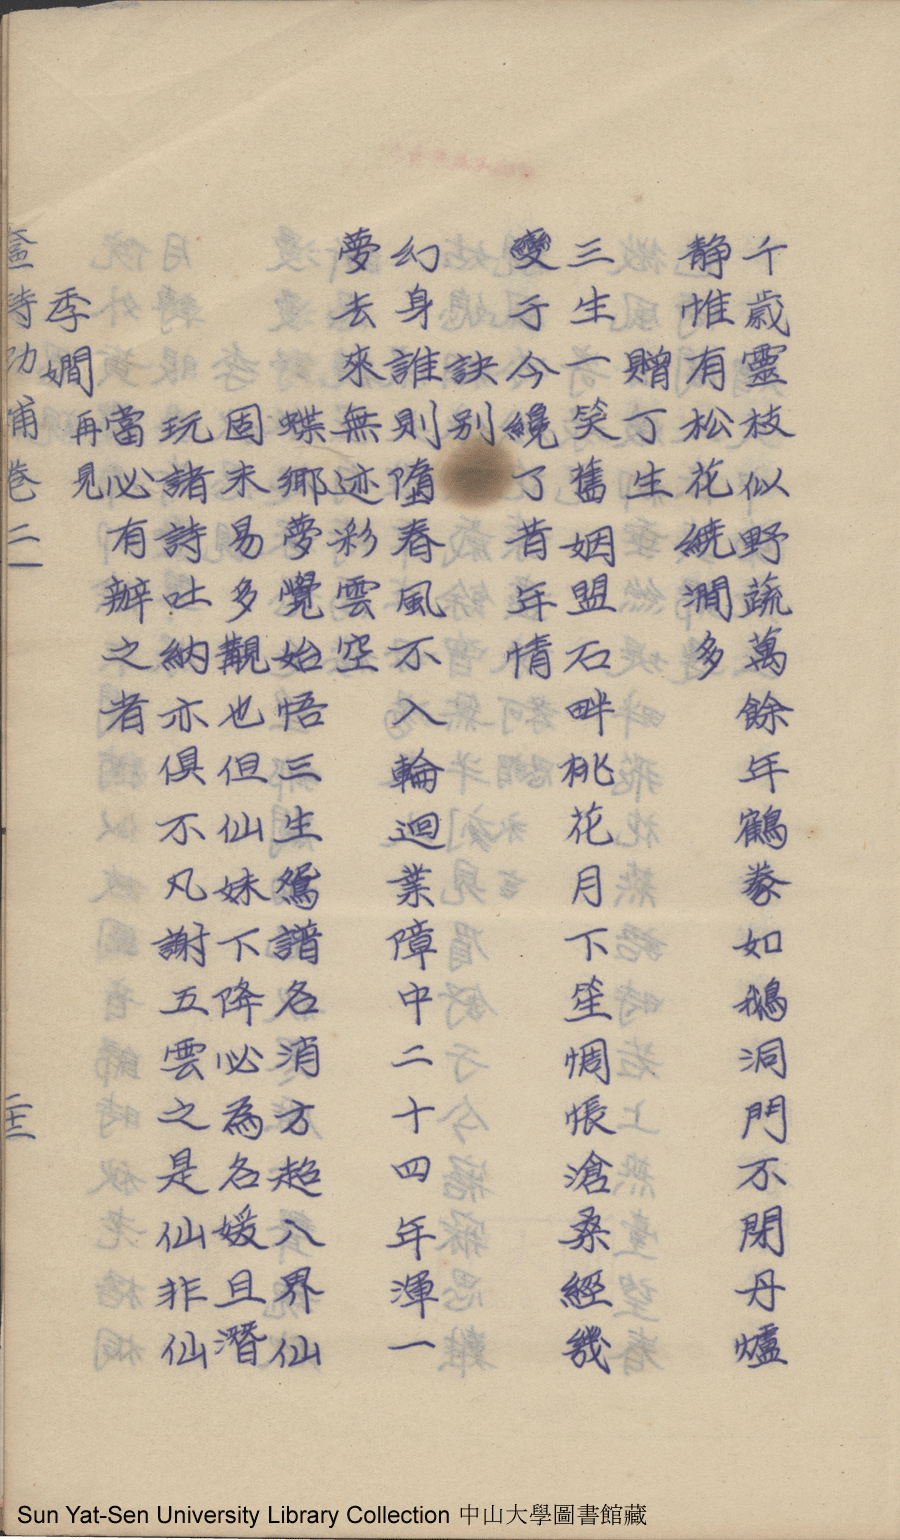 千歲靈枝似野蔬萬餘年鶴豢如鵝洞門不閉丹爐
靜惟有松花繞澗多
贈丁生
三生一笑舊姻盟石畔桃花月下笙惆悵滄桑經幾
變于今纔了昔年情
訣别
幻身誰則墮春風不入輪迴業障中二十四年渾一
夢去來無迹彩雲空
蝶鄉夢覺始悟三生鴛譜各消方超入界仙
固未易多覯也但仙妹下降必為名媛且潛
玩諸詩吐納亦俱不凡謝五雲之是仙非仙
當必有辦之者
季嫺再見
詩初補卷二
二十三
Sun Yat-Sen University Library Collection 中山大學圖書館藏